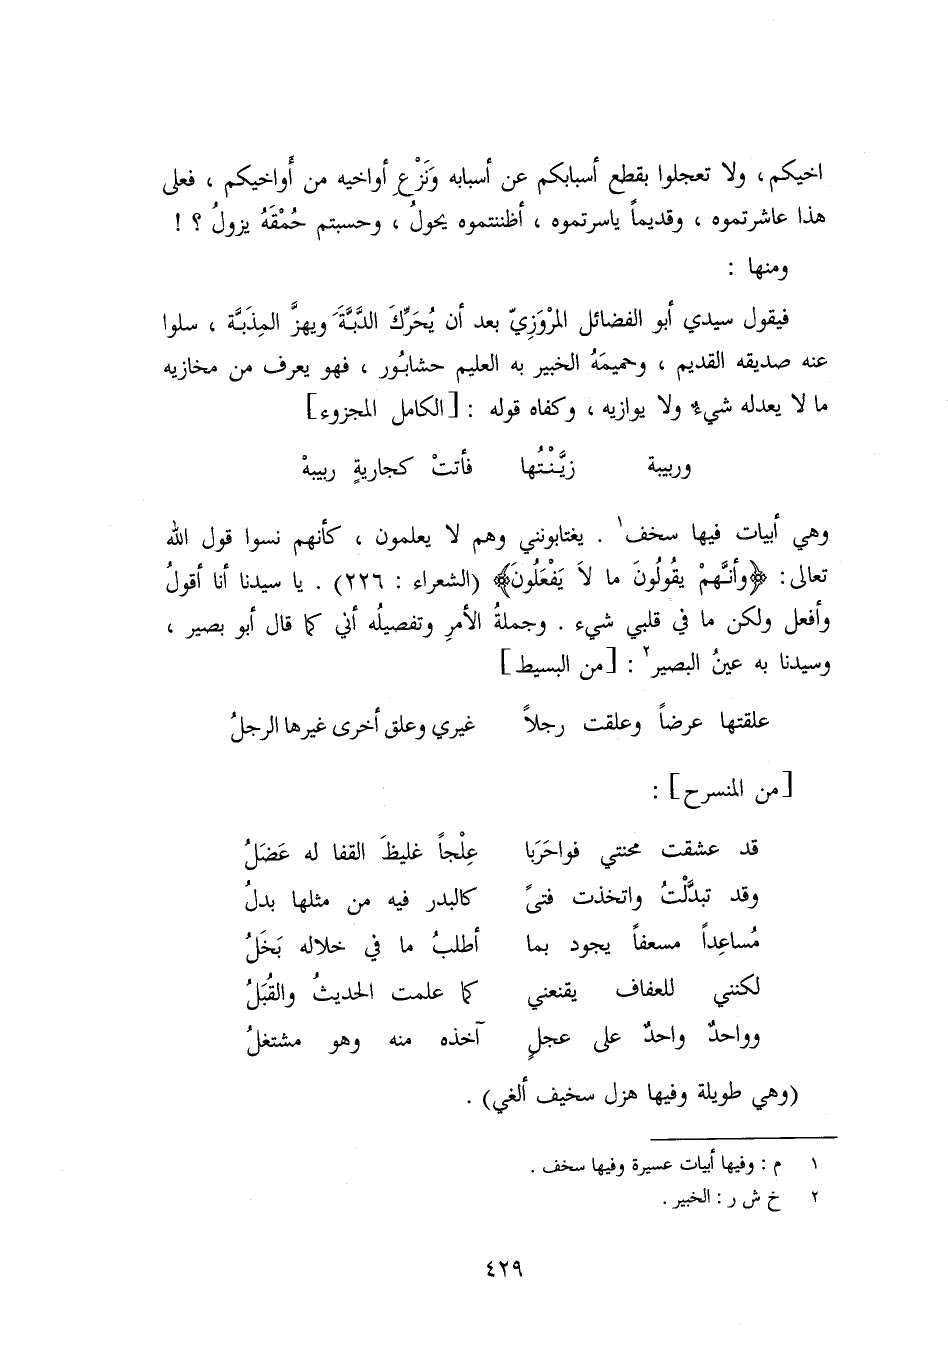 اخيكم ، ولا تعجلوا بقطع أسبابكم عن أسبابه وَنَزْعِ أواخيه من أَواخيكم ، فعلى
هذا عاشرتموه ، وقديماً ياسرتموه ، أظننتموه يحولُ ، وحسبتم حُمْقَهُ يزولُ ؟ !
ومنها :
فيقول سيدي أبو الفضائل المرْوَزِيّ بعد أن يُحَرِّكَ الدَّبَّةَ ويهزَّ المِذَبَّة ، سلوا
عنه صديقه القديم ، وحميمَهُ الخبير به العليم حشابُور ، فهو يعرف من مخازيه
ما لا يعدله شيءٌ ولا يوازيه ، وكفاه قوله : [الكامل المجزوء]
وربيبة زيَّنْتُها فأتتْ كجاريةٍ ربيبهْ
وهي أبيات فيها سخف١ . يغتابونني وهم لا يعلمون ، كأنهم نسوا قول الله
تعالى : ﴿وأنَّهمْ يقُولُونَ ما لاَ يَفْعَلُونَ﴾ (الشعراء : ٢٢٦) . يا سيدنا أنا أقولُ
وأفعل ولكن ما في قلبي شيء . وجملةُ الأمرِ وتفصيلُه أني كما قال أبو بصير ،
وسيدنا به عينُ البصير٢ : [من البسيط]
علقتها عرضاً وعلقت رجلاً غيري وعلق أخرى غيرها الرجلُ
[من المنسرح] :
قد عشقت محنتي فواحَرَبَا عِلْجاً غليظَ القفا له عَضَلُ
وقد تبدَّلْتُ واتخذت فتىً كالبدر فيه من مثلها بدلُ
مُساعِداً مسعفاً يجود بما أطلبُ ما في خلاله بَخَلُ
لكنني للعفاف يقنعني كما علمت الحديثُ والقُبَلُ
وواحدٌ واحدٌ على عجلٍ آخذه منه وهو مشتغلُ
(وهي طويلة وفيها هزل سخيف ألغي) .
١ م : وفيها أبيات عسيرة وفيها سخف .
٢ خ ش ر : الخبير .
٤٢٩